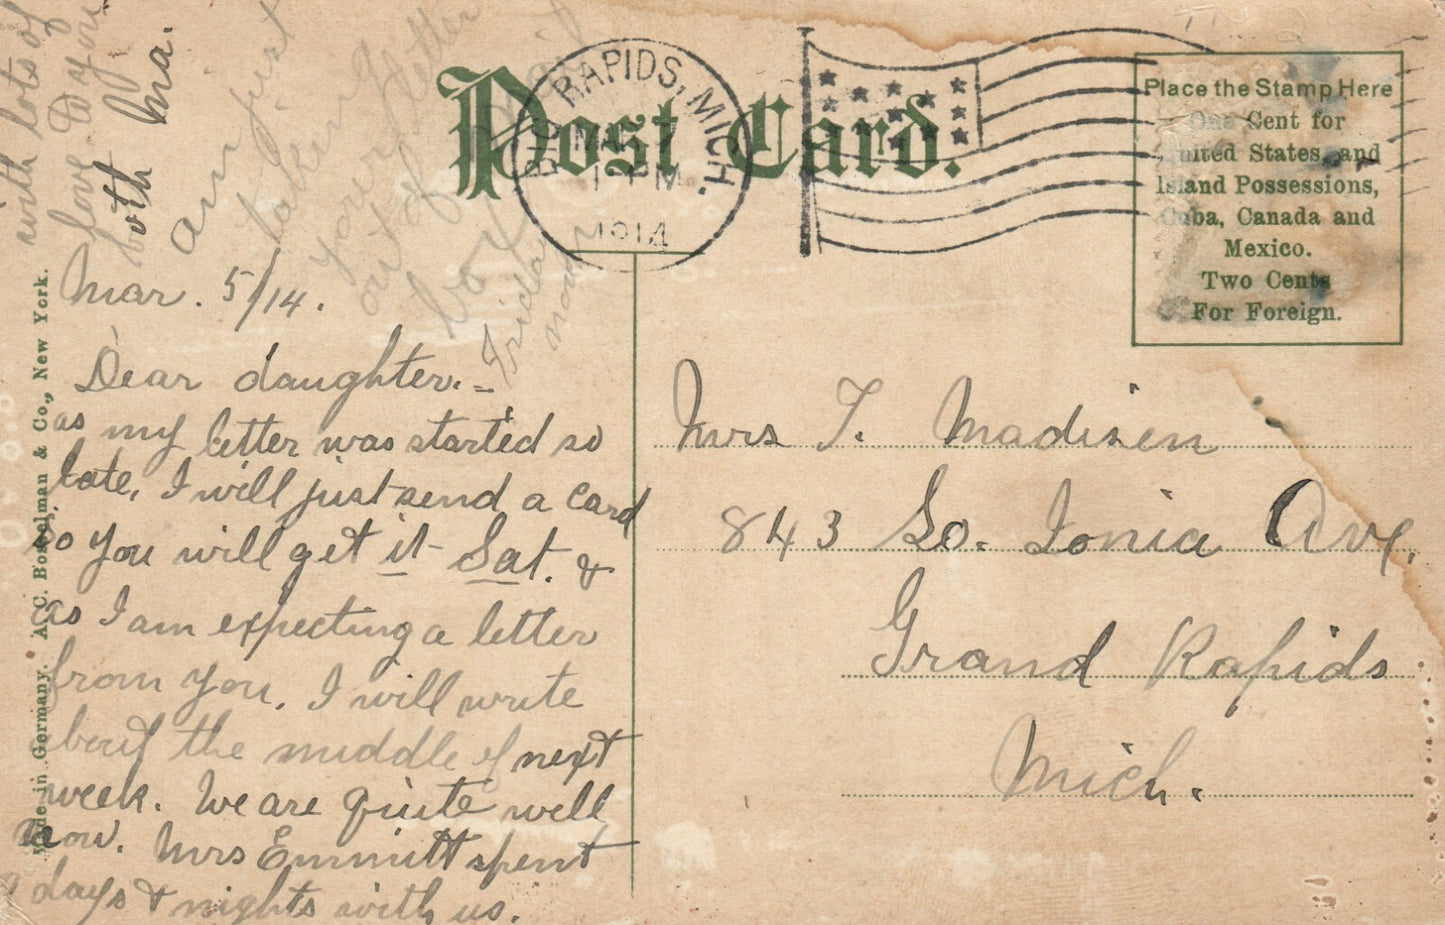 Post Card.
BIG RAPIDS, MICH.
MAR 7
12 PM
1914
Place the Stamp Here
One Cent for
United States, and
Island Possessions,
Cuba, Canada and
Mexico.
Two Cents
For Foreign.
Made in Germany. A. C. Bosselman & Co., New York.
Mar. 5/14.
Dear daughter.-
as my letter was started so
late, I will just send a card
so you will get it Sat. &
as I am expecting a letter
from you. I will write
about the middle of next
week. We are quite well
now. Mrs Emmitt spent
days & nights with us.
with lots of
love to you
both Ma.
am just
taking
your letter
out of
box
Friday
noon
Mrs T. Madisen
843 So. Ionia Ave.
Grand Rapids
Mich.